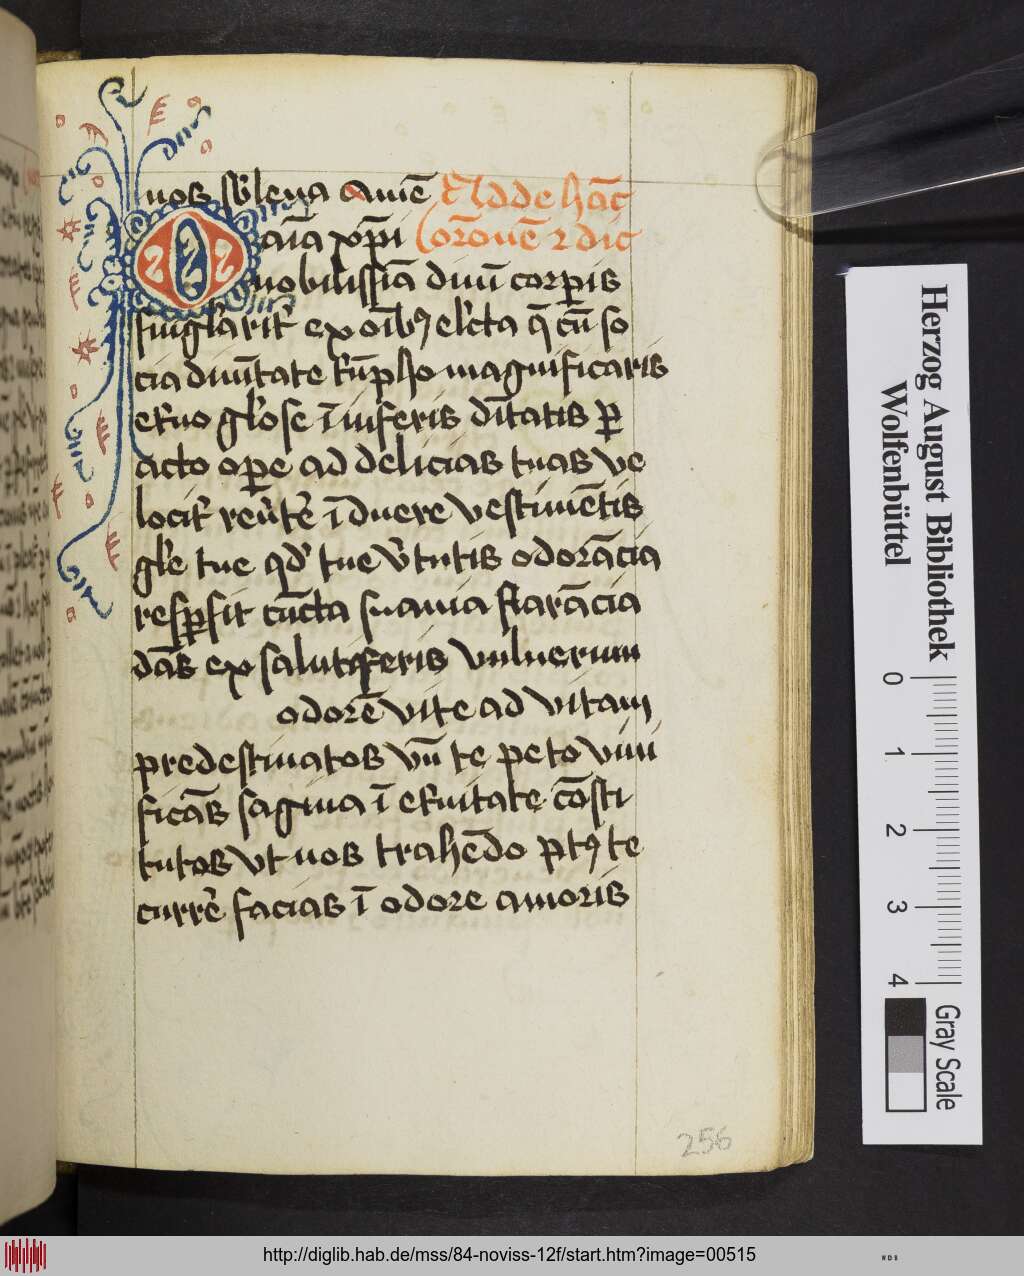 nos sp̄lena amē Clāde hāc
O aīa xp̄i orōnē ⁊ dic
nobilissīa diuī corp̲is
singl'arit' ex oīb⁹ el'cta q̄ cū so
cia diuītate t'ūpho magnificaris
et'no gl'ose ī inferis dītatis p̲
acto op̲e ad delicias tuas ve
locit' reu't'e īduere vestimētis
gl'e tue qd' tue v'tutis odorācia
resp̲sit cūcta suauia flarācia
dās ex salutiferis vulnerum
odorē vite ad vitam
predestinatos vn̄ te peto viui
ficās sagina ī et'nitate cōsti
tutos vt nos trahēdo pt⁹ te
curre' facias ī odore amoris
256
Herzog August Bibliothek
Wolfenbüttel
0 1 2 3 4
Gray Scale
http://diglib.hab.de/mss/84-noviss-12f/start.htm?image=00515